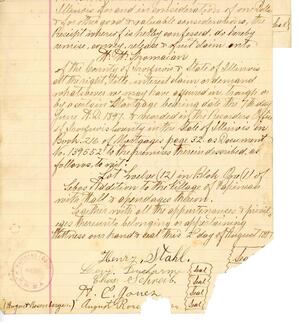 Illinois for and in consideration of one Dollar
& for other good & valuable considerations, the
receipt whereof is hereby confessed, do hereby
remise, convey, release & quit claim unto
of the County of Iroquois & State of Illinois
all the right, title, interest claim or demand
whatsoever we may have acquired in, through or
by a certain Mortgage bearing date the 7th day
June A.D. 1897, & recorded in the Recorders Office
of Iroquois County in the State of Illinois in
Book 216 of Mortgages page 52, as Document
No. 15552 to the premises therein described, as
follows, to wit:
Lot Twelve (12) in Block One (1) of
Addition to the Village of Papineau
with Hall & apendages thereon.
Together with all the appurtenances & privil
eges thereunto belonging or appertaining
Witness our hand & seal this day of August 189
Henry Stahl. Seal
Ducharme Seal
Seal
A. C. Jones Seal
August Seal
(August